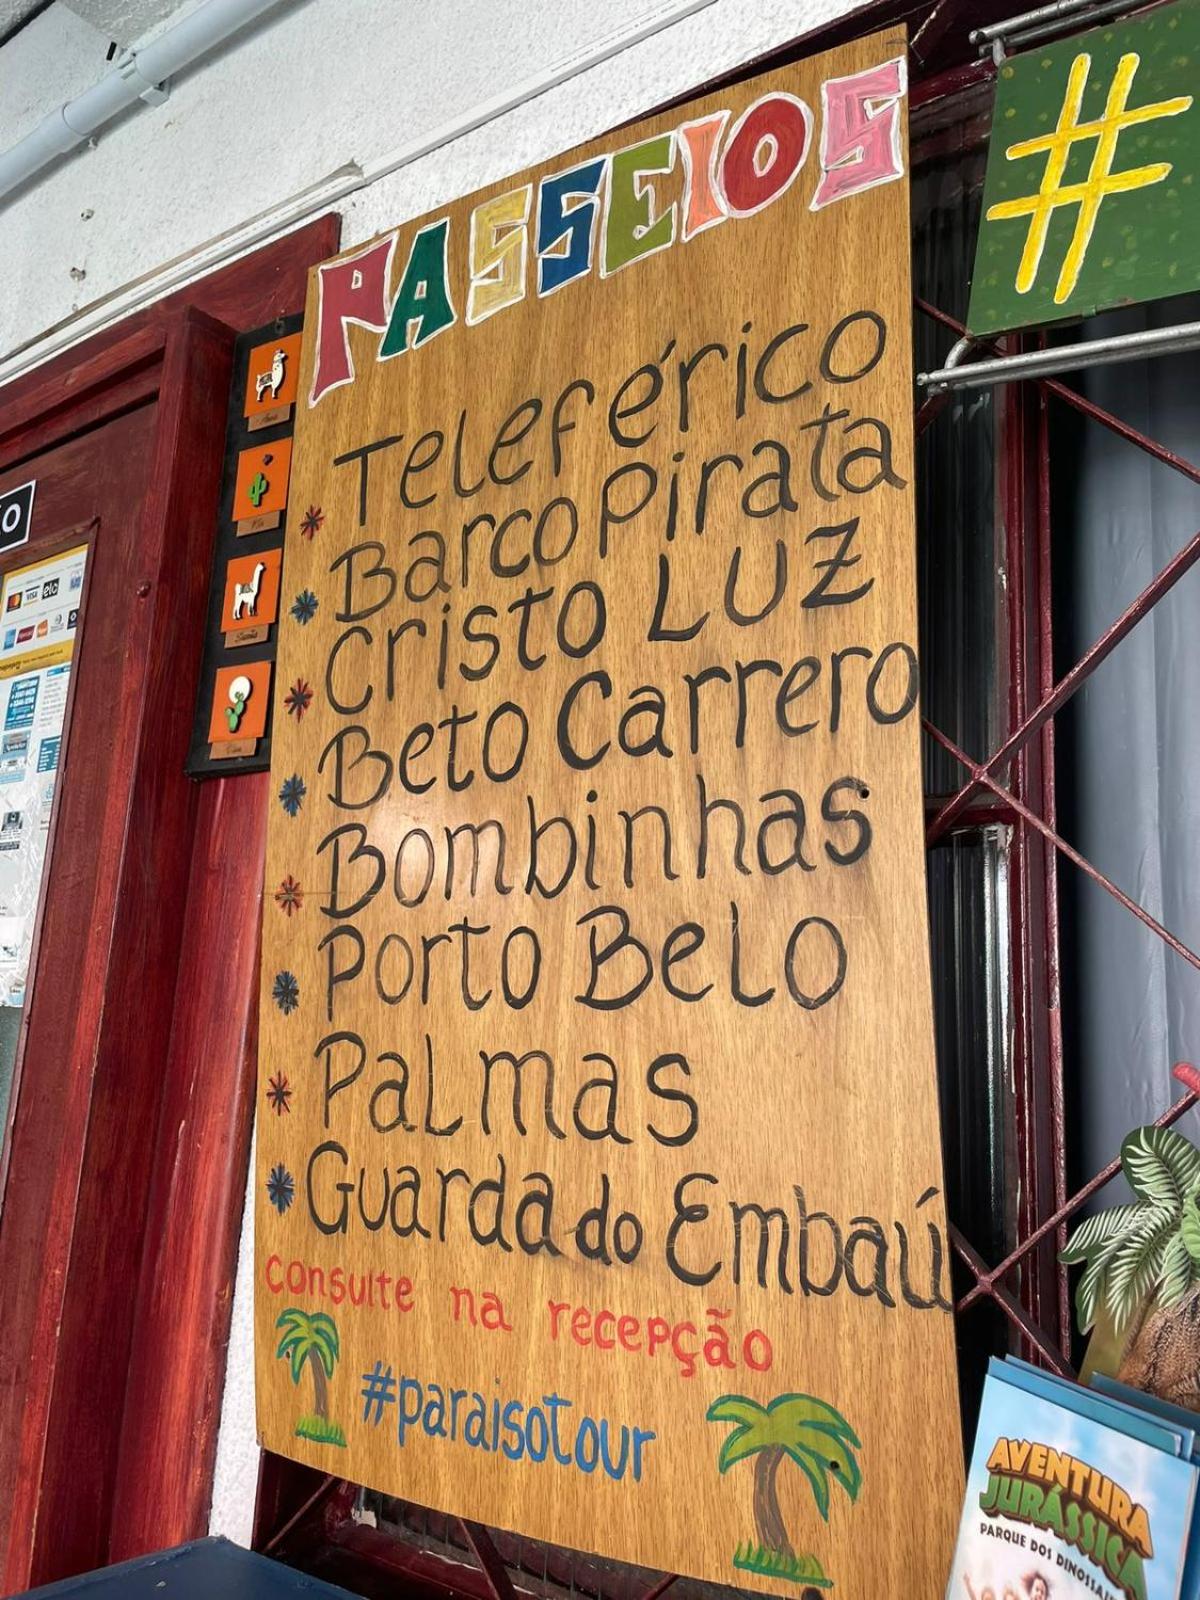 PASSEIOS
#
Teleférico
Barco Pirata
Cristo LUZ
Beto Carrero
Bombinhas
Porto Belo
Palmas
Guarda do Embaú
consulte na recepção
#paraisotour
VISA
elo
AVENTURA
JURÁSSICA
PARQUE DOS